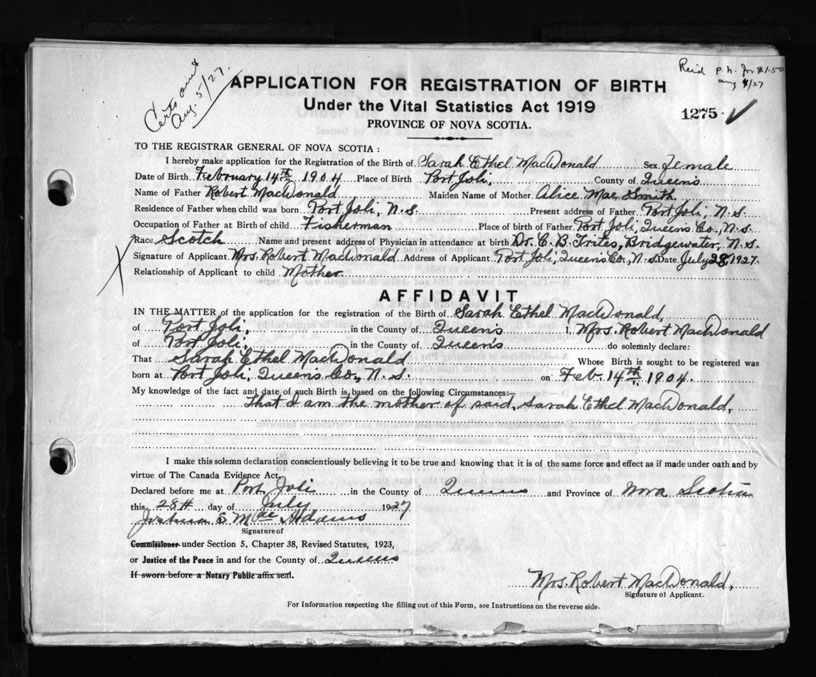 Certs out
Aug. 5/27.
p. n.
Aug 4/27
APPLICATION FOR REGISTRATION OF BIRTH
Under the Vital Statistics Act 1919
1275 ✓
PROVINCE OF NOVA SCOTIA.
TO THE REGISTRAR GENERAL OF NOVA SCOTIA :
I hereby make application for the Registration of the Birth of Sarah Ethel MacDonald Sex Female
Date of Birth February 14th, 1904 Place of Birth Port Joli, County of Queens
Name of Father Robert MacDonald Maiden Name of Mother Alice Mae Smith
Residence of Father when child was born Port Joli, N.S. Present address of Father Port Joli, N.S.
Occupation of Father at Birth of child Fisherman Place of birth of Father Port Joli, Queens Co., N.S.
Race Scotch Name and present address of Physician in attendance at birth Dr. C. B. Trites, Bridgewater, N.S.
Signature of Applicant Mrs. Robert MacDonald Address of Applicant Port Joli, Queens Co., N.S. Date July 28, 1927.
X
Relationship of Applicant to child Mother
AFFIDAVIT
IN THE MATTER of the application for the registration of the Birth of Sarah Ethel MacDonald,
of Port Joli, in the County of Queens I, Mrs. Robert MacDonald
of Port Joli, in the County of Queens do solemnly declare:
That Sarah Ethel MacDonald Whose Birth is sought to be registered was
born at Port Joli, Queens Co., N.S. on Feb. 14th, 1904.
My knowledge of the fact and date of such Birth is based on the following Circumstances:
That I am the mother of said, Sarah Ethel MacDonald,
I make this solemn declaration conscientiously believing it to be true and knowing that it is of the same force and effect as if made under oath and by
virtue of The Canada Evidence Act,
Declared before me at Port Joli in the County of Queens and Province of Nova Scotia
this 28th day of July 1927
Joshua S. MacAdams
Signature of
Commissioner under Section 5, Chapter 38, Revised Statutes, 1923,
or Justice of the Peace in and for the County of Queens
If sworn before a Notary Public affix seal.
Mrs. Robert MacDonald,
Signature of Applicant.
For Information respecting the filling out of this Form, see Instructions on the reverse side.